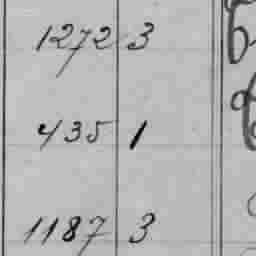 1272 3
435 1
1187 3